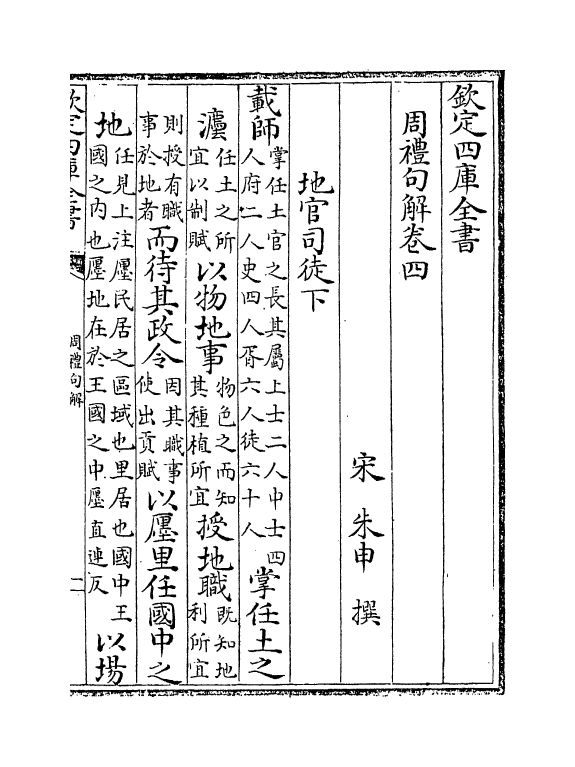 欽定四庫全書
周禮句解卷四
宋 朱申 撰
地官司徒下
載師掌任土官之長其屬上士二人中士四人府二人史四人胥六人徒六十人掌任土之
灋任土之所宜以制賦以物地事物色之而知其種植所宜授地職既知地利所宜
則授有職事於地者而待其政令因其職事使出貢賦以廛里任國中之
地任見上注廛民居之區域也里居也國中王國之內也廛地在於王國之中廛直連反以場
欽定四庫全書
周禮句解
二